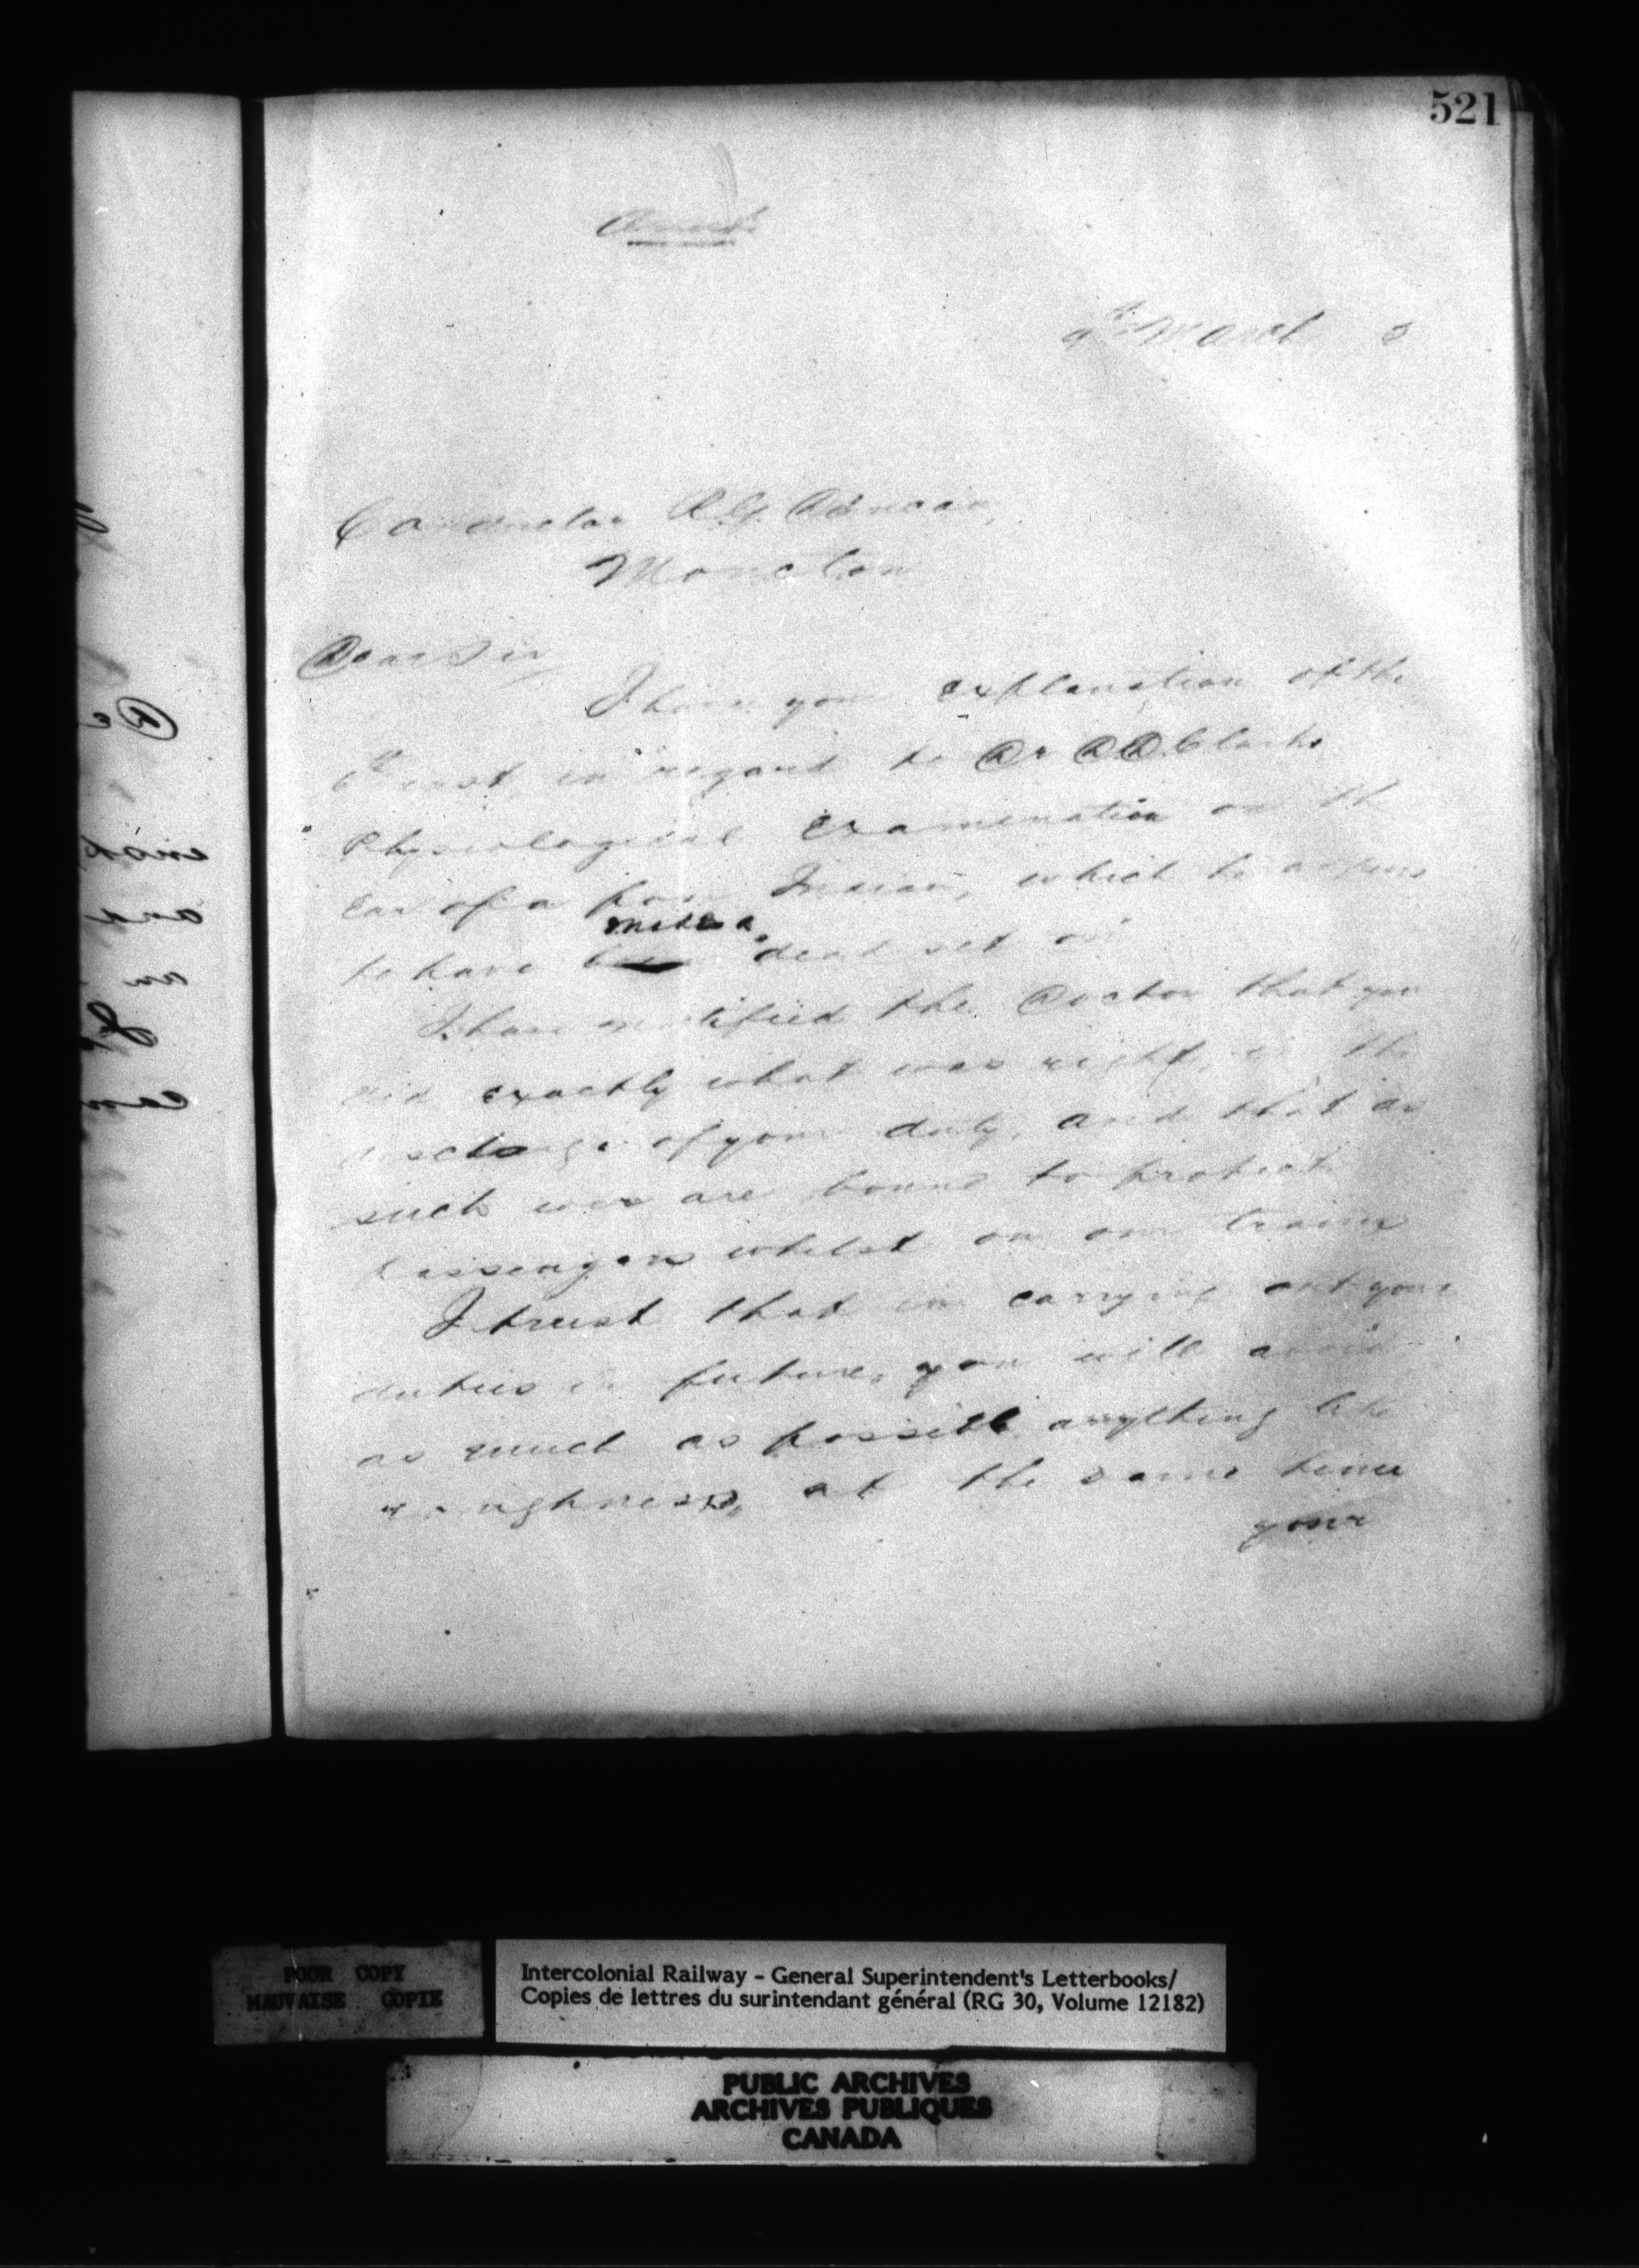 521
9th March 3
Conductor
Moncton
Dear Sir
I have your explanation of the
inst, in regard to Dr D D Clark's
Physiological Examination on the
Ear of a poor Indian, which he appears
to have made a dead set on
I have notified the Doctor that you
did exactly what was right, in the
discharge of your duty, and that as
such we are bound to protect
passengers whilst on our trains
I trust that in carrying out your
duties in future, you will avoid
as much as possible anything like
roughness, at the same time
your
POOR COPY
MAUVAISE COPIE
Intercolonial Railway - General Superintendent's Letterbooks/
Copies de lettres du surintendant général (RG 30, Volume 12182)
PUBLIC ARCHIVES
ARCHIVES PUBLIQUES
CANADA